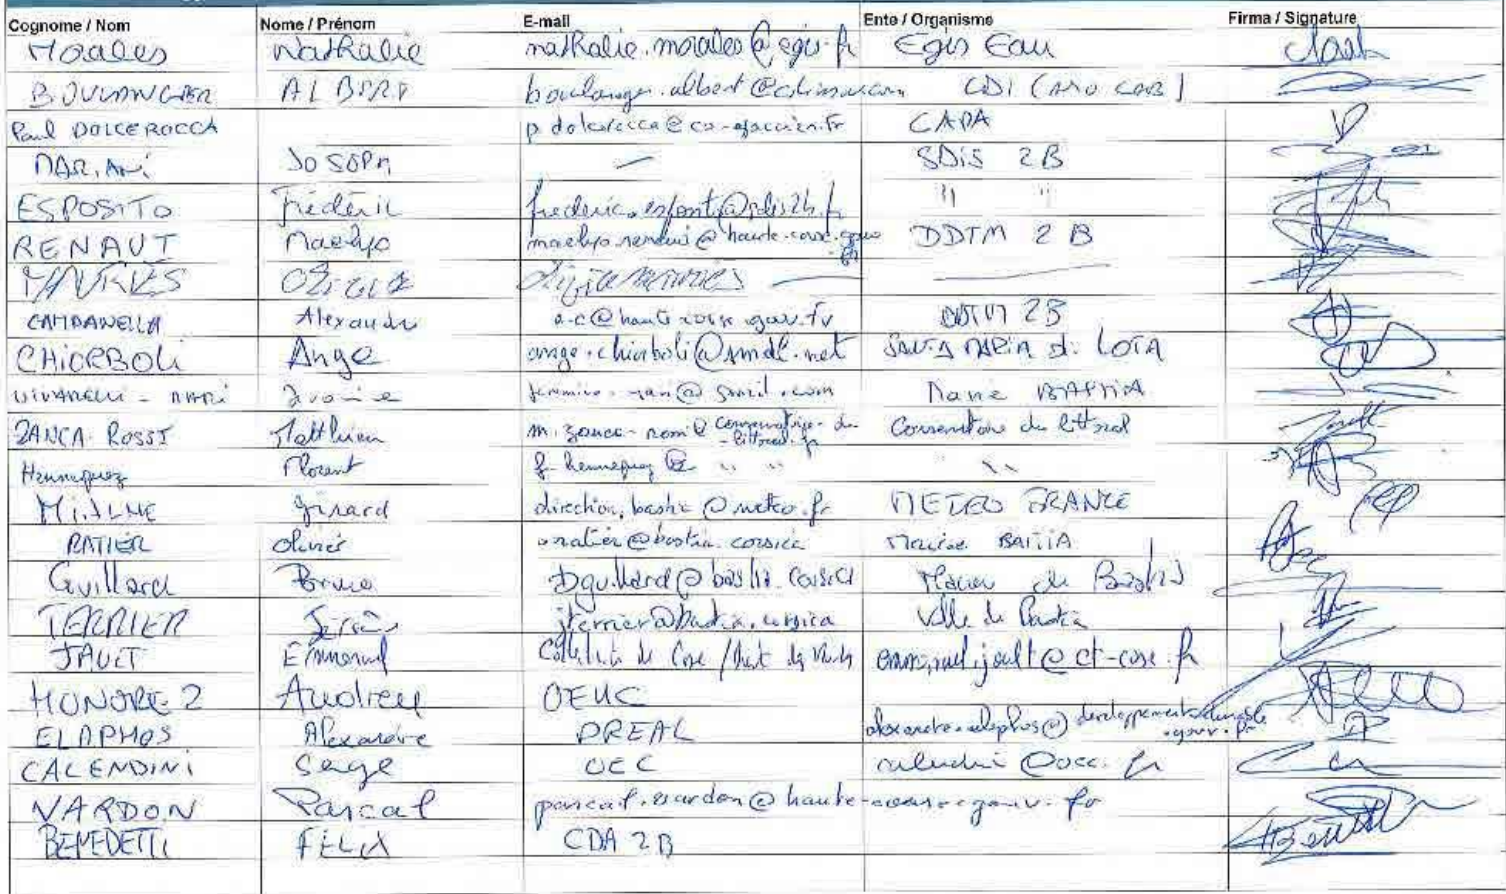 Cognome / Nom Nome / Prénom E-mail Ente / Organisme Firma / Signature
Morales Nathalie nathalie.morales@egis.fr Egis Eau
BOULANGER ALBERT boulanger.albert@ CDI (AMO CAB)
Paul DOLCEROCCA p.dolcerocca@ca-ajaccien.fr CAPA
MARIANI JOSEPH — SDIS 2B
ESPOSITO Frédéric frederic.esposito@sdis2b.fr " "
RENAUT Maelys @haute-corse.gouv.fr DDTM 2B
CAMPANELLA Alexandre a-c@haute-corse.gouv.fr DDTM 2B
CHIORBOLI Ange ange.chiorboli@smdl.net SANTA MARIA di LOTA
VIVARELLI - MARI @gmail.com Mairie BASTIA
ZANCA-ROSSI Matthieu m.zanca-rossi@conservatoire-du-littoral.fr Conservatoire du littoral
Hennequez Florent f.hennequez@ " " " "
Gérard direction.bastia@meteo.fr METEO FRANCE
RATIER Olivier oratier@bastia.corsica Mairie BASTIA
Guillard Bruno bguillard@bastia.corsica Mairie de Bastia
TERRIER Jérôme jterrier@bastia.corsica Ville de Bastia
JAULT Emmanuel Collectivité de Corse / emmanuel.jault@ct-corse.fr
HONOREZ Audrey OEHC
ELAPHOS Alexandre DREAL alexandre.elaphos@developpement-durable.gouv.fr
CALENDINI Serge OEC calendini@oec.fr
VARDON Pascal pascal.vardon@haute-corse.gouv.fr
BENEDETTI FELIX CDA 2B